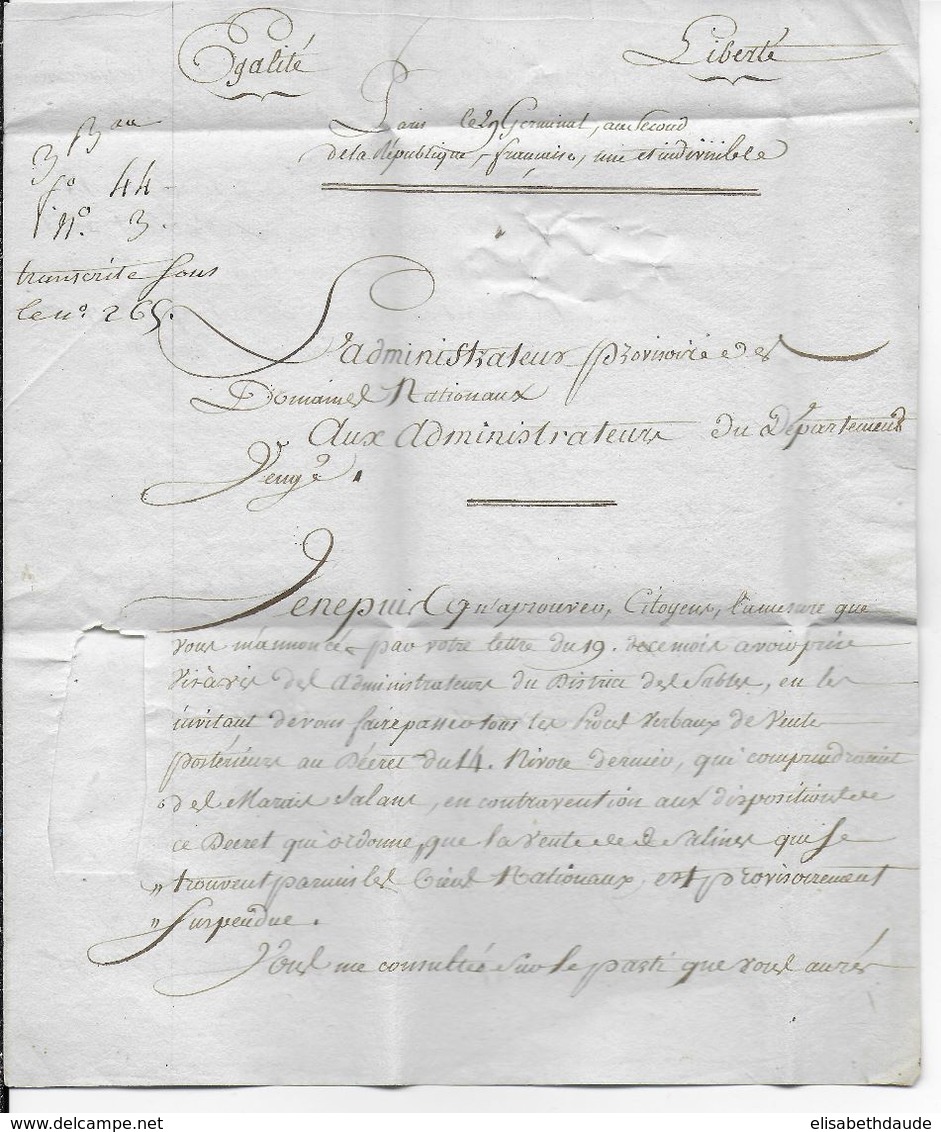 Egalité
Liberté
Paris le 29 Germinal, an Second
de la République, française, une et indivisible
3 Bau
fo 44
no. 3.
transcrite sous
le no. 265.
L'administrateur provisoire des
Domaines Nationaux
Aux administrateurs du Département
Vengé.
Je ne puis qu'aprouver, Citoyens, la mesure que
vous m'annoncé par votre lettre du 19. de ce mois avoir prise
vis à vis des administrateurs du District des Sables, en les
invitant de vous faire passer tous les Procès verbaux de vente
postérieurs au Décret du 14. Nivose dernier, qui comprendraient
des Marais Salans, en contravention aux dispositions de
ce Décret qui ordonne, que la vente des Salines qui se
" trouvent parmi les biens Nationaux, est provisoirement
" suspendue.
Vous me consultés sur le parti que vous aurés
elisabethdaude